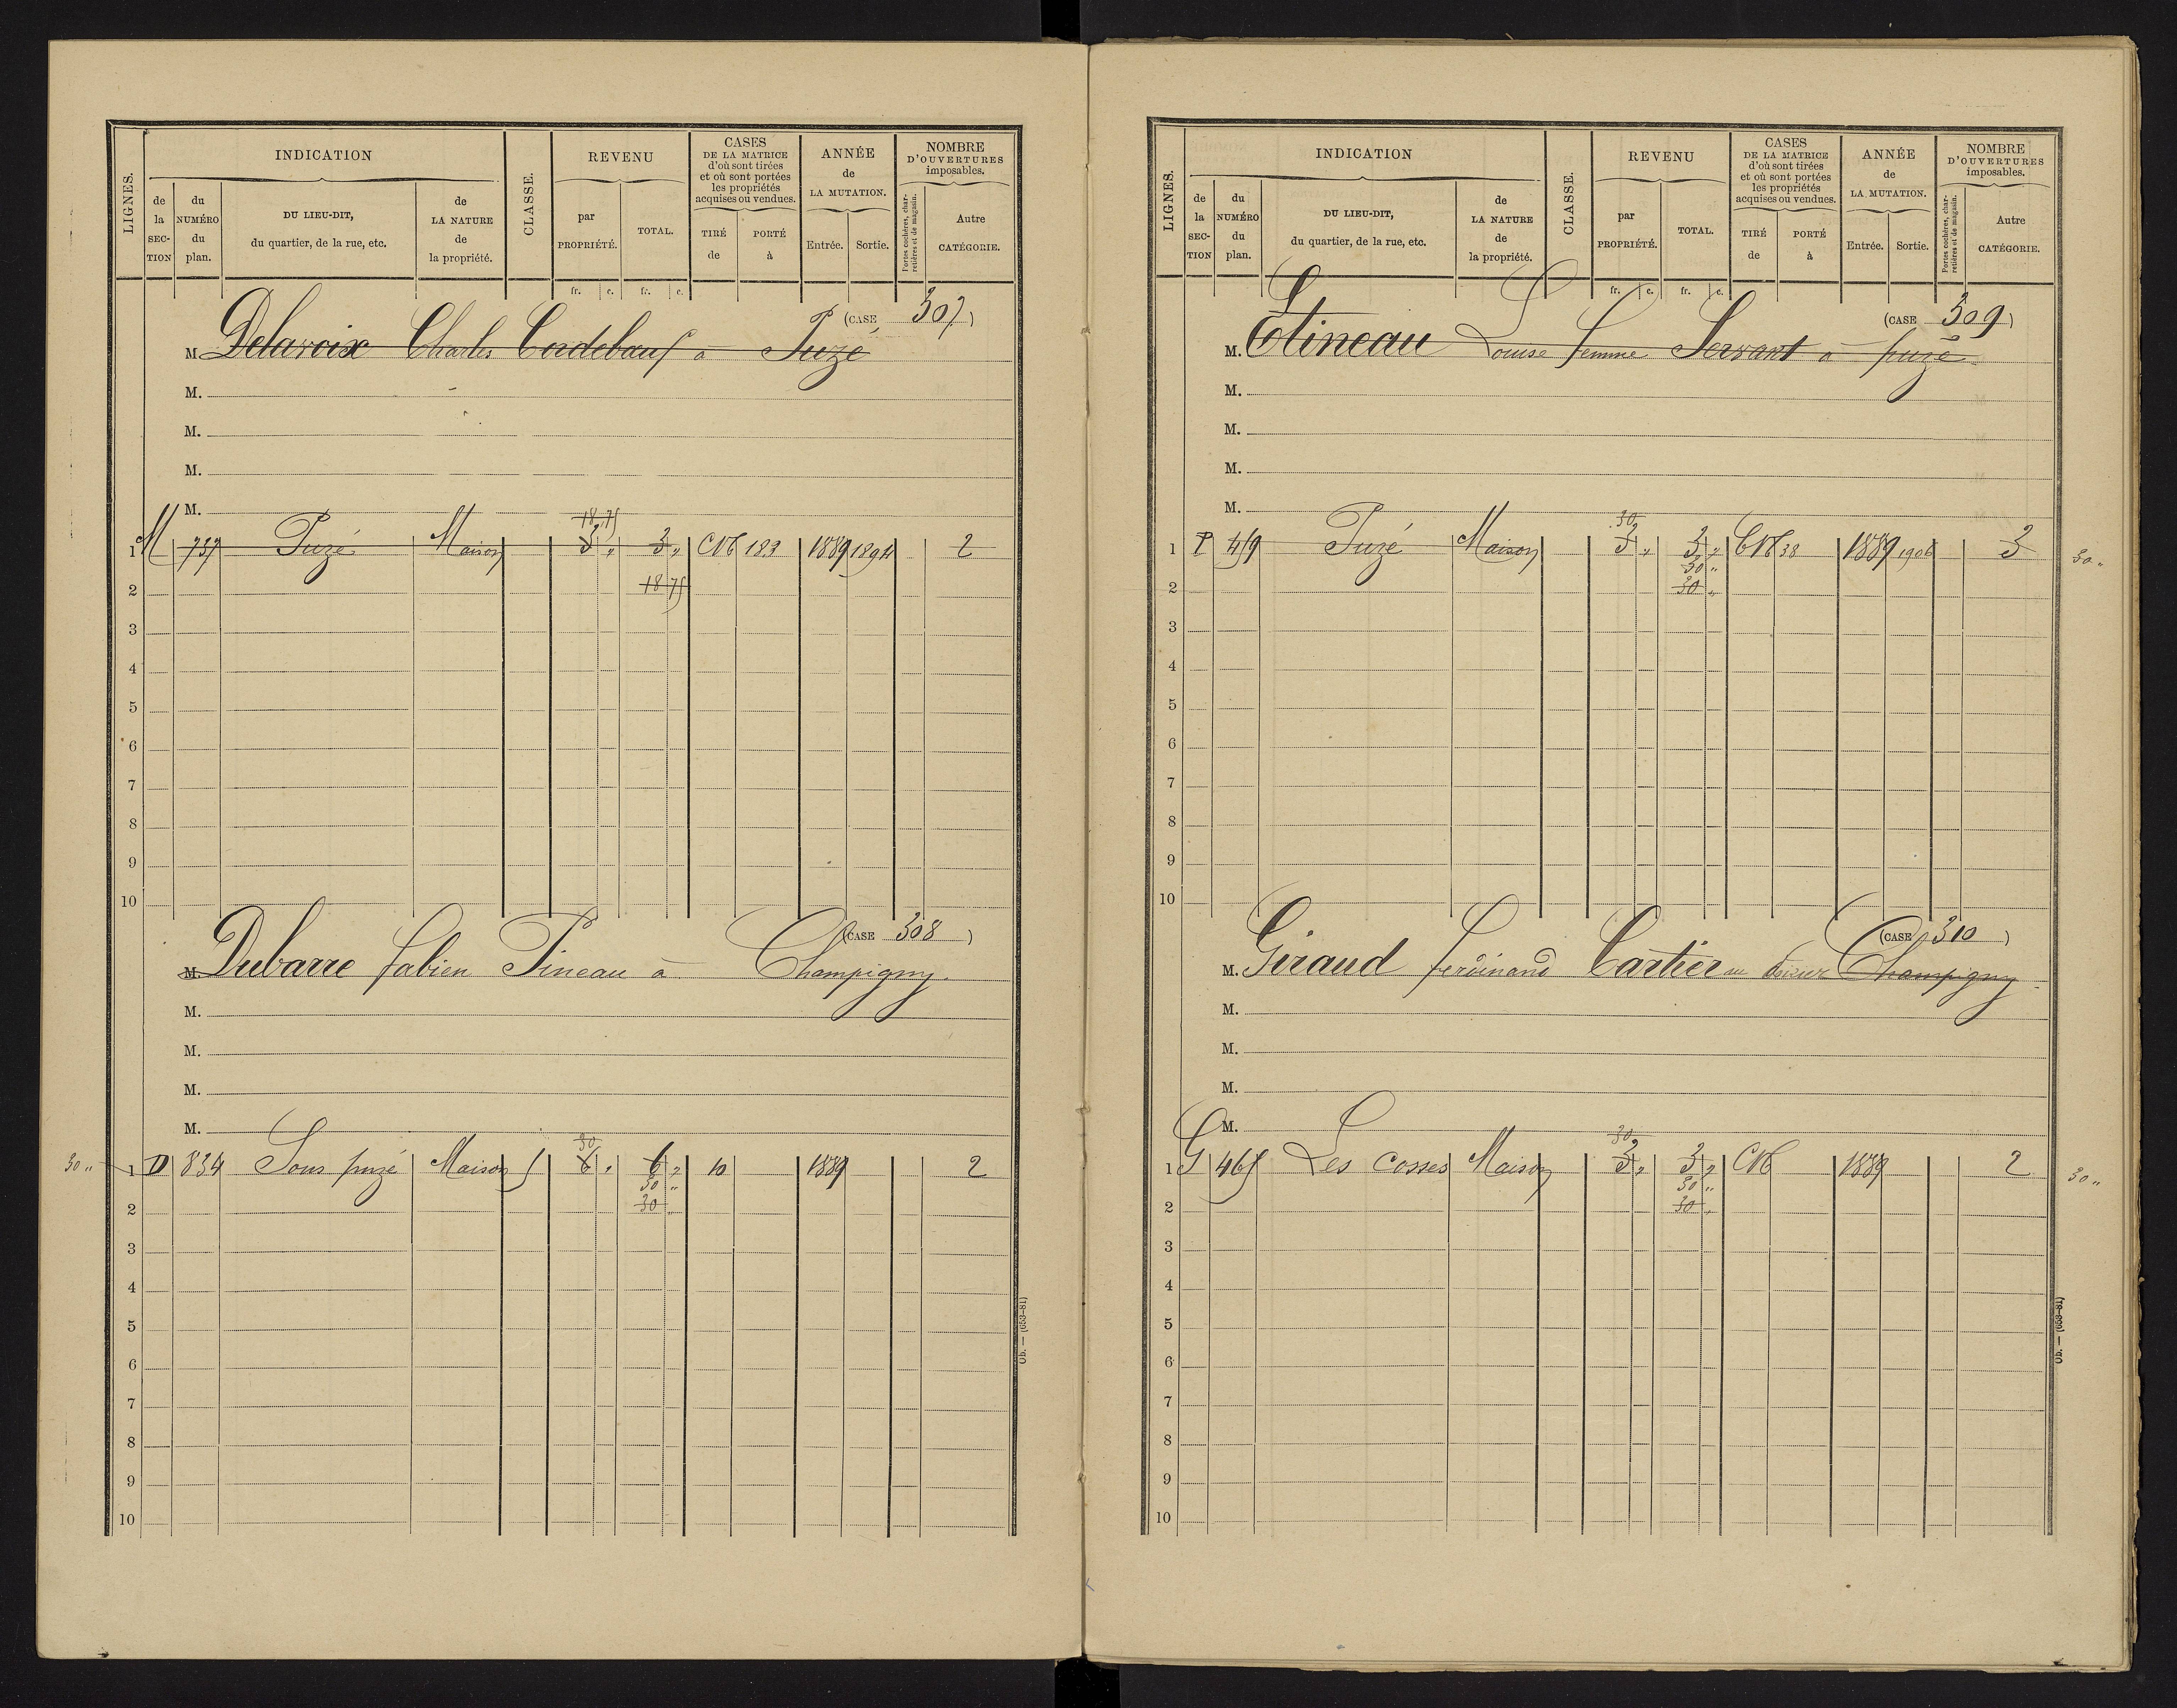 LIGNES.
INDICATION
de la SECTION
du NUMÉRO du plan.
DU LIEU-DIT, du quartier, de la rue, etc.
de LA NATURE de la propriété.
CLASSE.
REVENU
par PROPRIÉTÉ.
TOTAL.
CASES DE LA MATRICE d'où sont tirées et où sont portées les propriétés acquises ou vendues.
TIRÉ de
PORTÉ à
ANNÉE de LA MUTATION.
Entrée.
Sortie.
NOMBRE D'OUVERTURES imposables.
Portes cochères, charretières et de magasin.
Autre CATÉGORIE.
fr. c. fr. c.
(CASE 307)
M. Delaroix Charles à Puzé
M.
M.
M.
M.
18 75
1 M 737 Puzé Maison 3 " 3 " CN 183 1889 1894 2
2 18 75
3
4
5
6
7
8
9
10
(CASE 308)
M. Dubarre fabien Pineau à Champigny
M.
M.
M.
M.
30
30 " 1 D 834 Sous puzé Maison 5 6 " 6 " 10 1889 2
30 "
2 30 "
3
4
5
6
7
8
9
10
Ob. — (653-81)
LIGNES.
INDICATION
de la SECTION
du NUMÉRO du plan.
DU LIEU-DIT, du quartier, de la rue, etc.
de LA NATURE de la propriété.
CLASSE.
REVENU
par PROPRIÉTÉ.
TOTAL.
CASES DE LA MATRICE d'où sont tirées et où sont portées les propriétés acquises ou vendues.
TIRÉ de
PORTÉ à
ANNÉE de LA MUTATION.
Entrée.
Sortie.
NOMBRE D'OUVERTURES imposables.
Portes cochères, charretières et de magasin.
Autre CATÉGORIE.
fr. c. fr. c.
(CASE 309)
M. Etineau Louise femme Servant à puzé
M.
M.
M.
M.
30
1 P 459 Puzé Maison 3 " 3 " CN 38 1889 1906 3 30 "
30 "
2 30 "
3
4
5
6
7
8
9
10
(CASE 310)
M. Giraud ferdinand Cartier Champigny
M.
M.
M.
M.
30
1 G 465 Les Cosses Maison 3 " 3 " CN 1889 2 30 "
30 "
2 30 "
3
4
5
6
7
8
9
10
Ob. — (653-81)